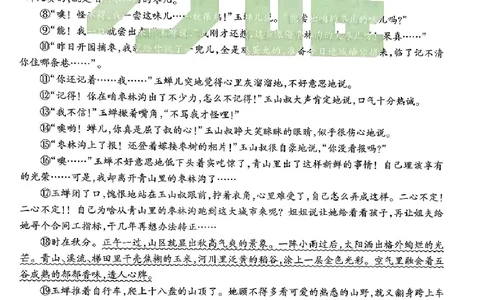 ⑧“噢！
⑨“能！我
⑩“昨日开园摘枣，我
你住哪条巷……”。
⑪“你还记着……我……”玉蝉儿突地觉得心里灰溜溜地，不好意思地说。
⑫“记得！你在咱枣林沟出了不少力，怎么不记得！”玉山叔大声肯定地说，口气十分热诚。
⑬“我不信！”玉蝉撇着嘴角，“不骂我才怪哩！”
⑭“噢哟！蝉儿，你真是屈了叔的心！”玉山叔睁大笑眯眯的眼睛，似乎很伤心地说。
⑮“枣林沟上了报！还登着嫁接枣树的相片！”玉山叔很自豪地说，“你没看报吗？”
⑯“噢……”玉蝉不好意思地低下头着实吃惊了，青山里出了这样新鲜的事情！自己理该享有
的光荣……可是，我却离开青山里的枣林沟了……
⑰玉蝉闭了口，愧恨地站在玉山叔跟前，拧着衣角，心里难受了，自己怎么弄成这样。二心不定！
二心不定！！自己为啥从青山里的枣林沟跑到这大城市来呢？姐姐说让她给看看孩子，再让姐夫给
她寻个合同工指标，干几年再想办法转正……
⑱时在秋分。正午一过，山区就显出秋高气爽的景象。一阵小雨过后，太阳洒出格外绚烂的光
芒。青山、溪流、梯田里干壳焦樱的玉米、河川里泛黄的稻谷，涂上一层金色光彩。空气里融会着五
谷成熟的郁郁香味，透人心脾。
⑲玉蝉推着自行车，爬上十八盘的山顶了。她顾不得多看可爱的熟悉的山野，就又翻身跨上车